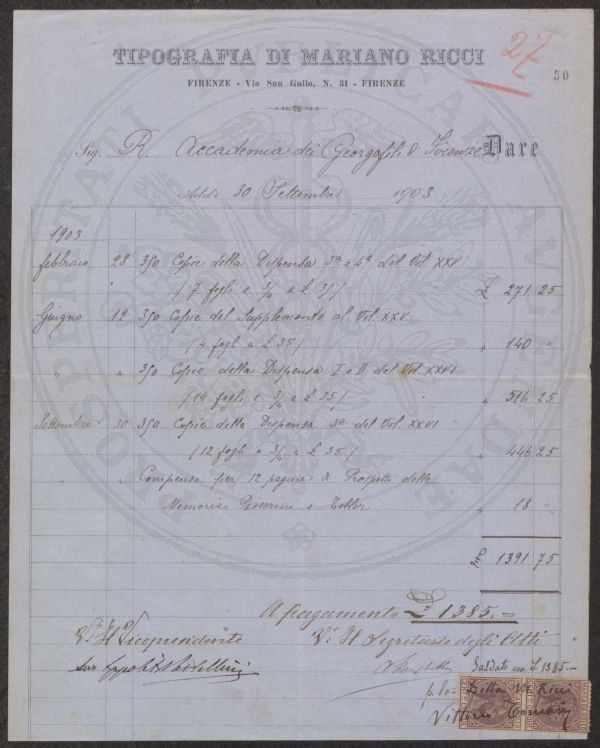 TIPOGRAFIA DI MARIANO RICCI
27
50
FIRENZE - Via San Gallo, N. 31 - FIRENZE
Sig. R. Accademia dei Georgofili di Firenze Dare
Addì 30 Settembre 1903
1903
febbraio 28 350 Copie della Dispensa 3a e 4a del Vol. XXV
(7 fogli e 3/4 a £ 35) £ 271 25
Giugno 12 350 Copie del Supplemento al Vol. XXV
(4 fogli a £ 35) " 140 =
" " 350 Copie della Dispensa I e II del Vol. XXVI
(14 fogli e 3/4 a £ 35) " 516 25
Settembre 30 350 Copie della Dispensa 3a del Vol. XXVI
(12 fogli e 3/4 a £ 35) " 446 25
" " Compenso per 12 pagine di Prospetti delle
Memorie Passerini e " 18 =
1391 75
A pagamento £ 1385.=
V° Il Vicepresidente V° Il Segretario degli Atti
Saldato con £ 1385.-
p. la Ditta M. Ricci
Vittorio